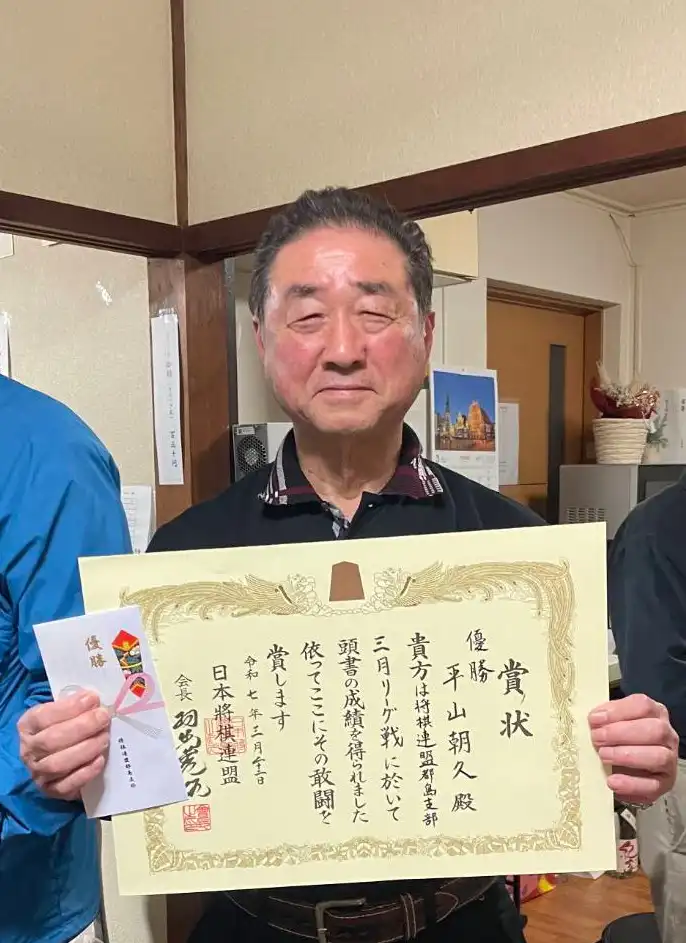 賞状
優勝
平山朝久殿
貴方は将棋連盟都島支部
三月リーグ戦に於いて
頭書の成績を得られました
依ってここにその敢闘を
賞します
令和七年三月二十三日
日本将棋連盟
会長
優勝